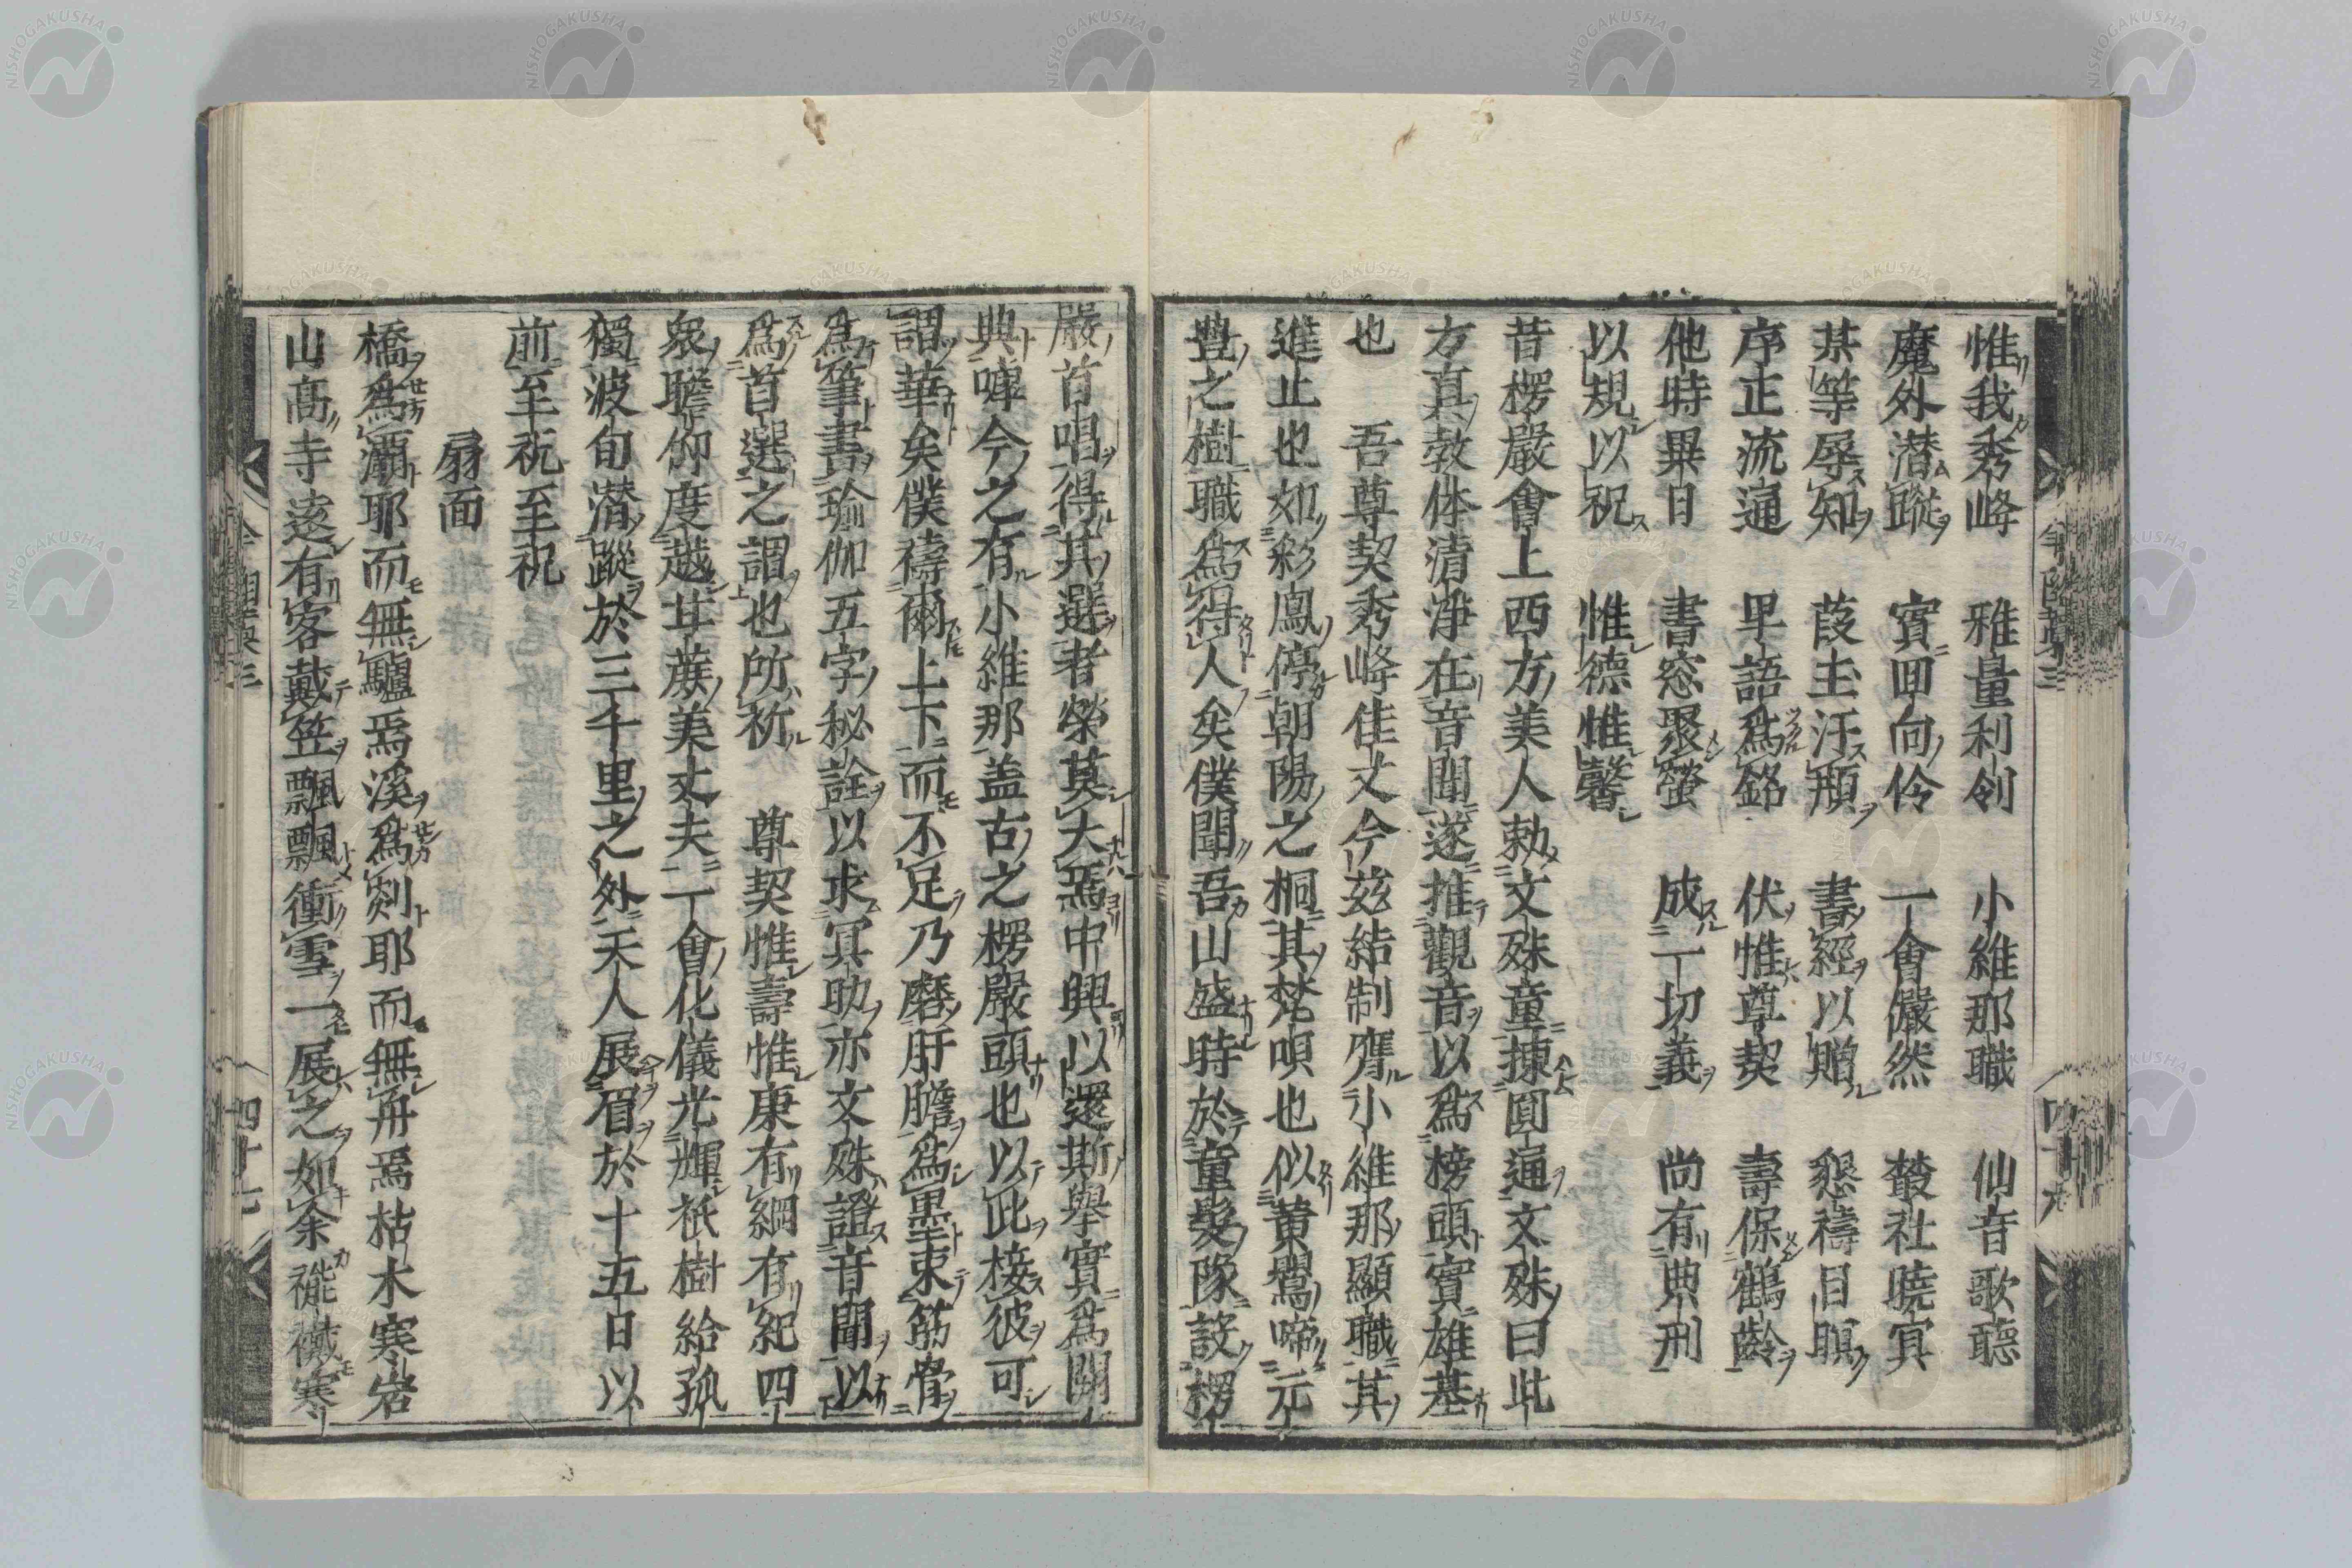 惟我秀峰　雅量利刢　小維那職　仙音歌聽
魔外潜蹤　實回向伶　一會儼然　叢社曉寘
某等辱知　葭圭汙頩　書經以贈　懇禱目瞑
序正流通　早語爲銘　伏惟尊契　壽保鶴齡
他時異日　書窓聚螢　成一切義　尚有典刑
以規以祝　惟德惟馨
昔楞嚴會上西方美人勅文殊童揀圓通文殊曰此
方真教体清淨在音聞遂推觀音以爲榜頭實雄基
也　吾尊契秀峰佳丈今茲結制膺小維那顯職其
進止也如彩鳳停朝陽之桐其梵唄也似黄鸎啼元
豊之樹職爲得人矣僕聞吾山盛時於童髮隊設楞
嚴首唱得其選者榮莫大焉中興以還斯舉實爲關
典嘑今之有小維那盖古之楞嚴頭也以此接彼可
謂華矣僕禱爾上下而不足乃磨肝膽爲墨束筋骨
爲筆書瑜伽五字秘詮以求冥助亦文殊證音聞以
爲首選之謂也所祈　尊契惟壽惟康有綱有紀四
衆瞻仰度越苾蒭美丈夫一會化儀光輝祇樹給孤
獨波旬潜蹤於三千里之外天人展眉於十五日以
前至祝至祝
扇面
橋爲灞耶而無驢焉溪爲剡耶而無舟焉枯木寒岩
山高寺遠有客戴笠飄飄衝雪一展之如余褦襶寒